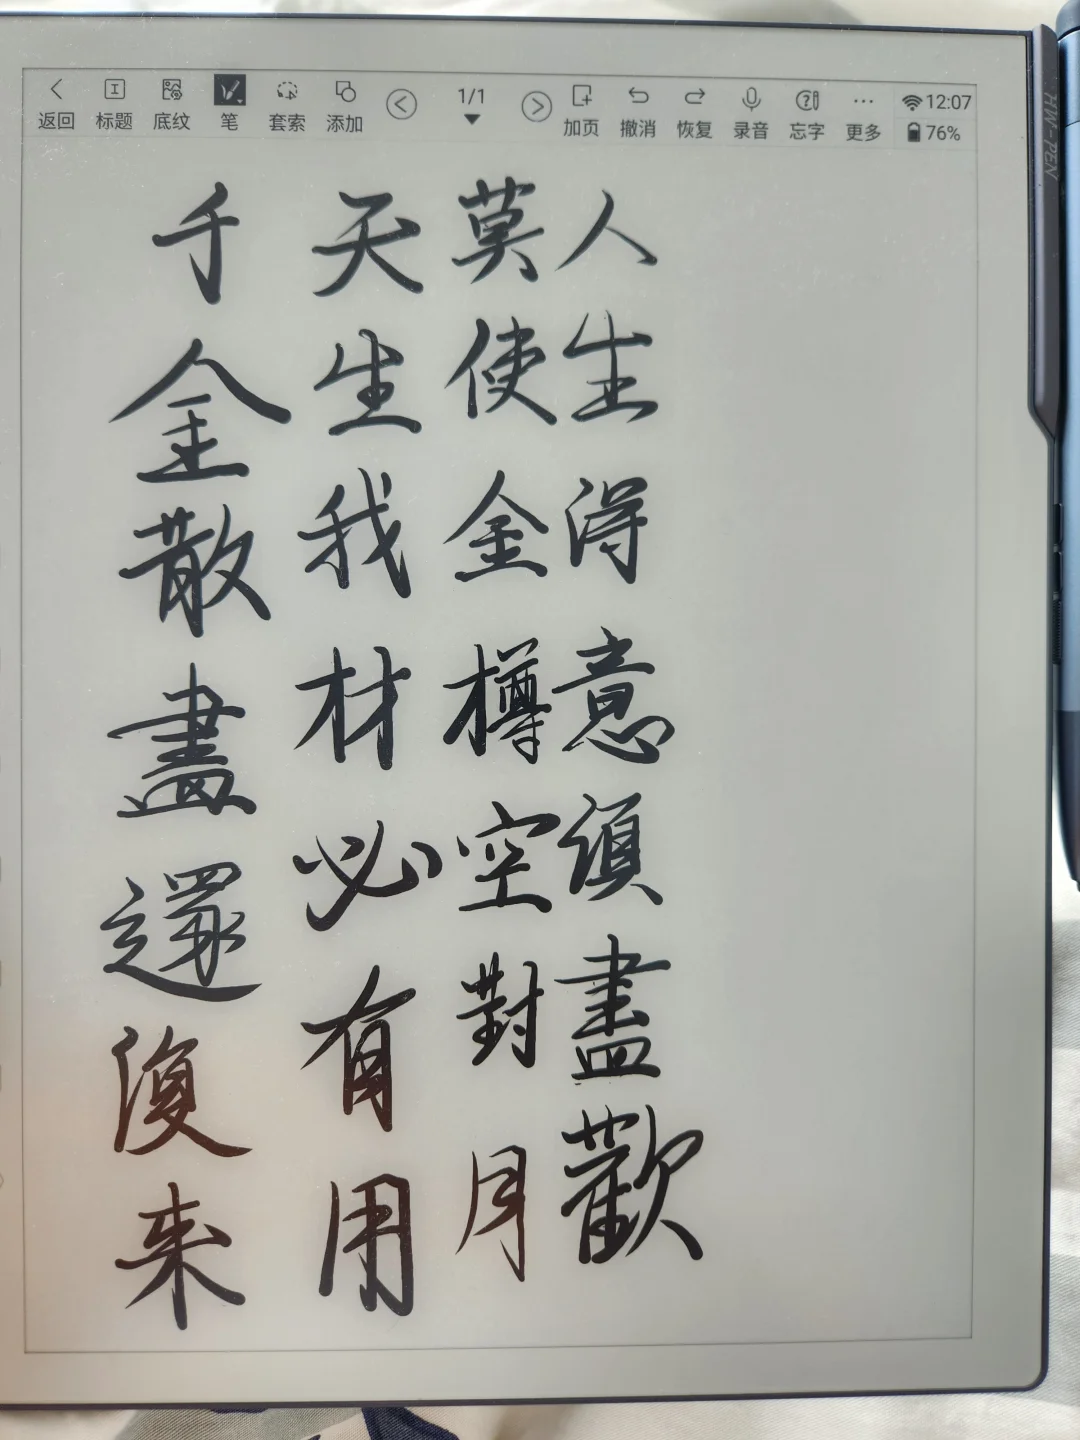 返回 标题 底纹 笔 套索 添加 1/1 加页 撤消 恢复 录音 忘字 更多 12:07 76%
HW-PEN
人生得意須盡歡
莫使金樽空對月
天生我材必有用
千金散盡還復来